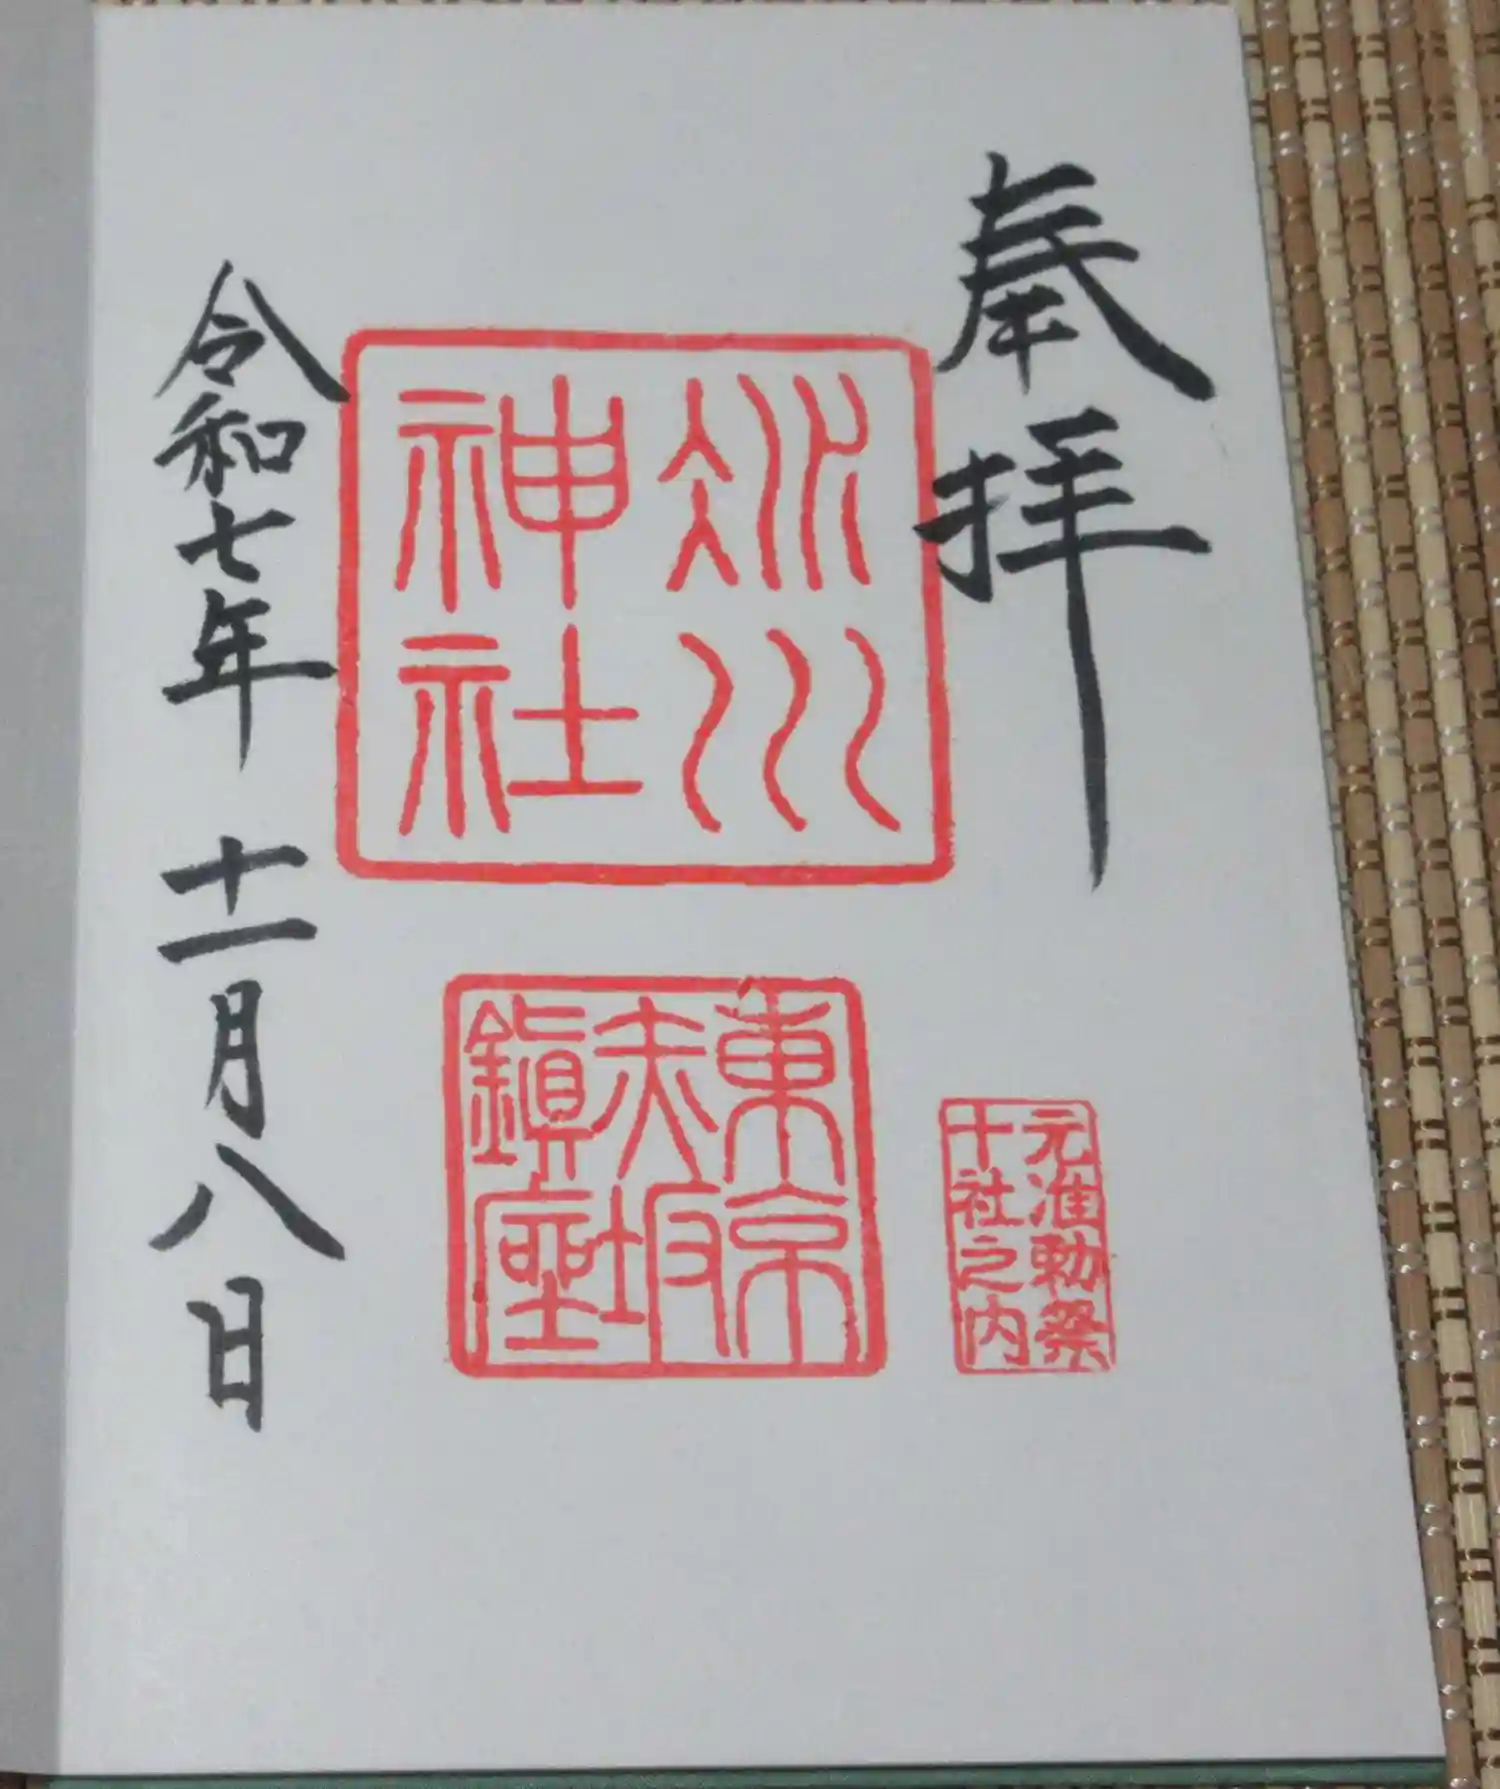 奉拝
氷川
神社
東京
赤坂
鎮座
元准勅祭
十社之内
令和七年 十一月八日